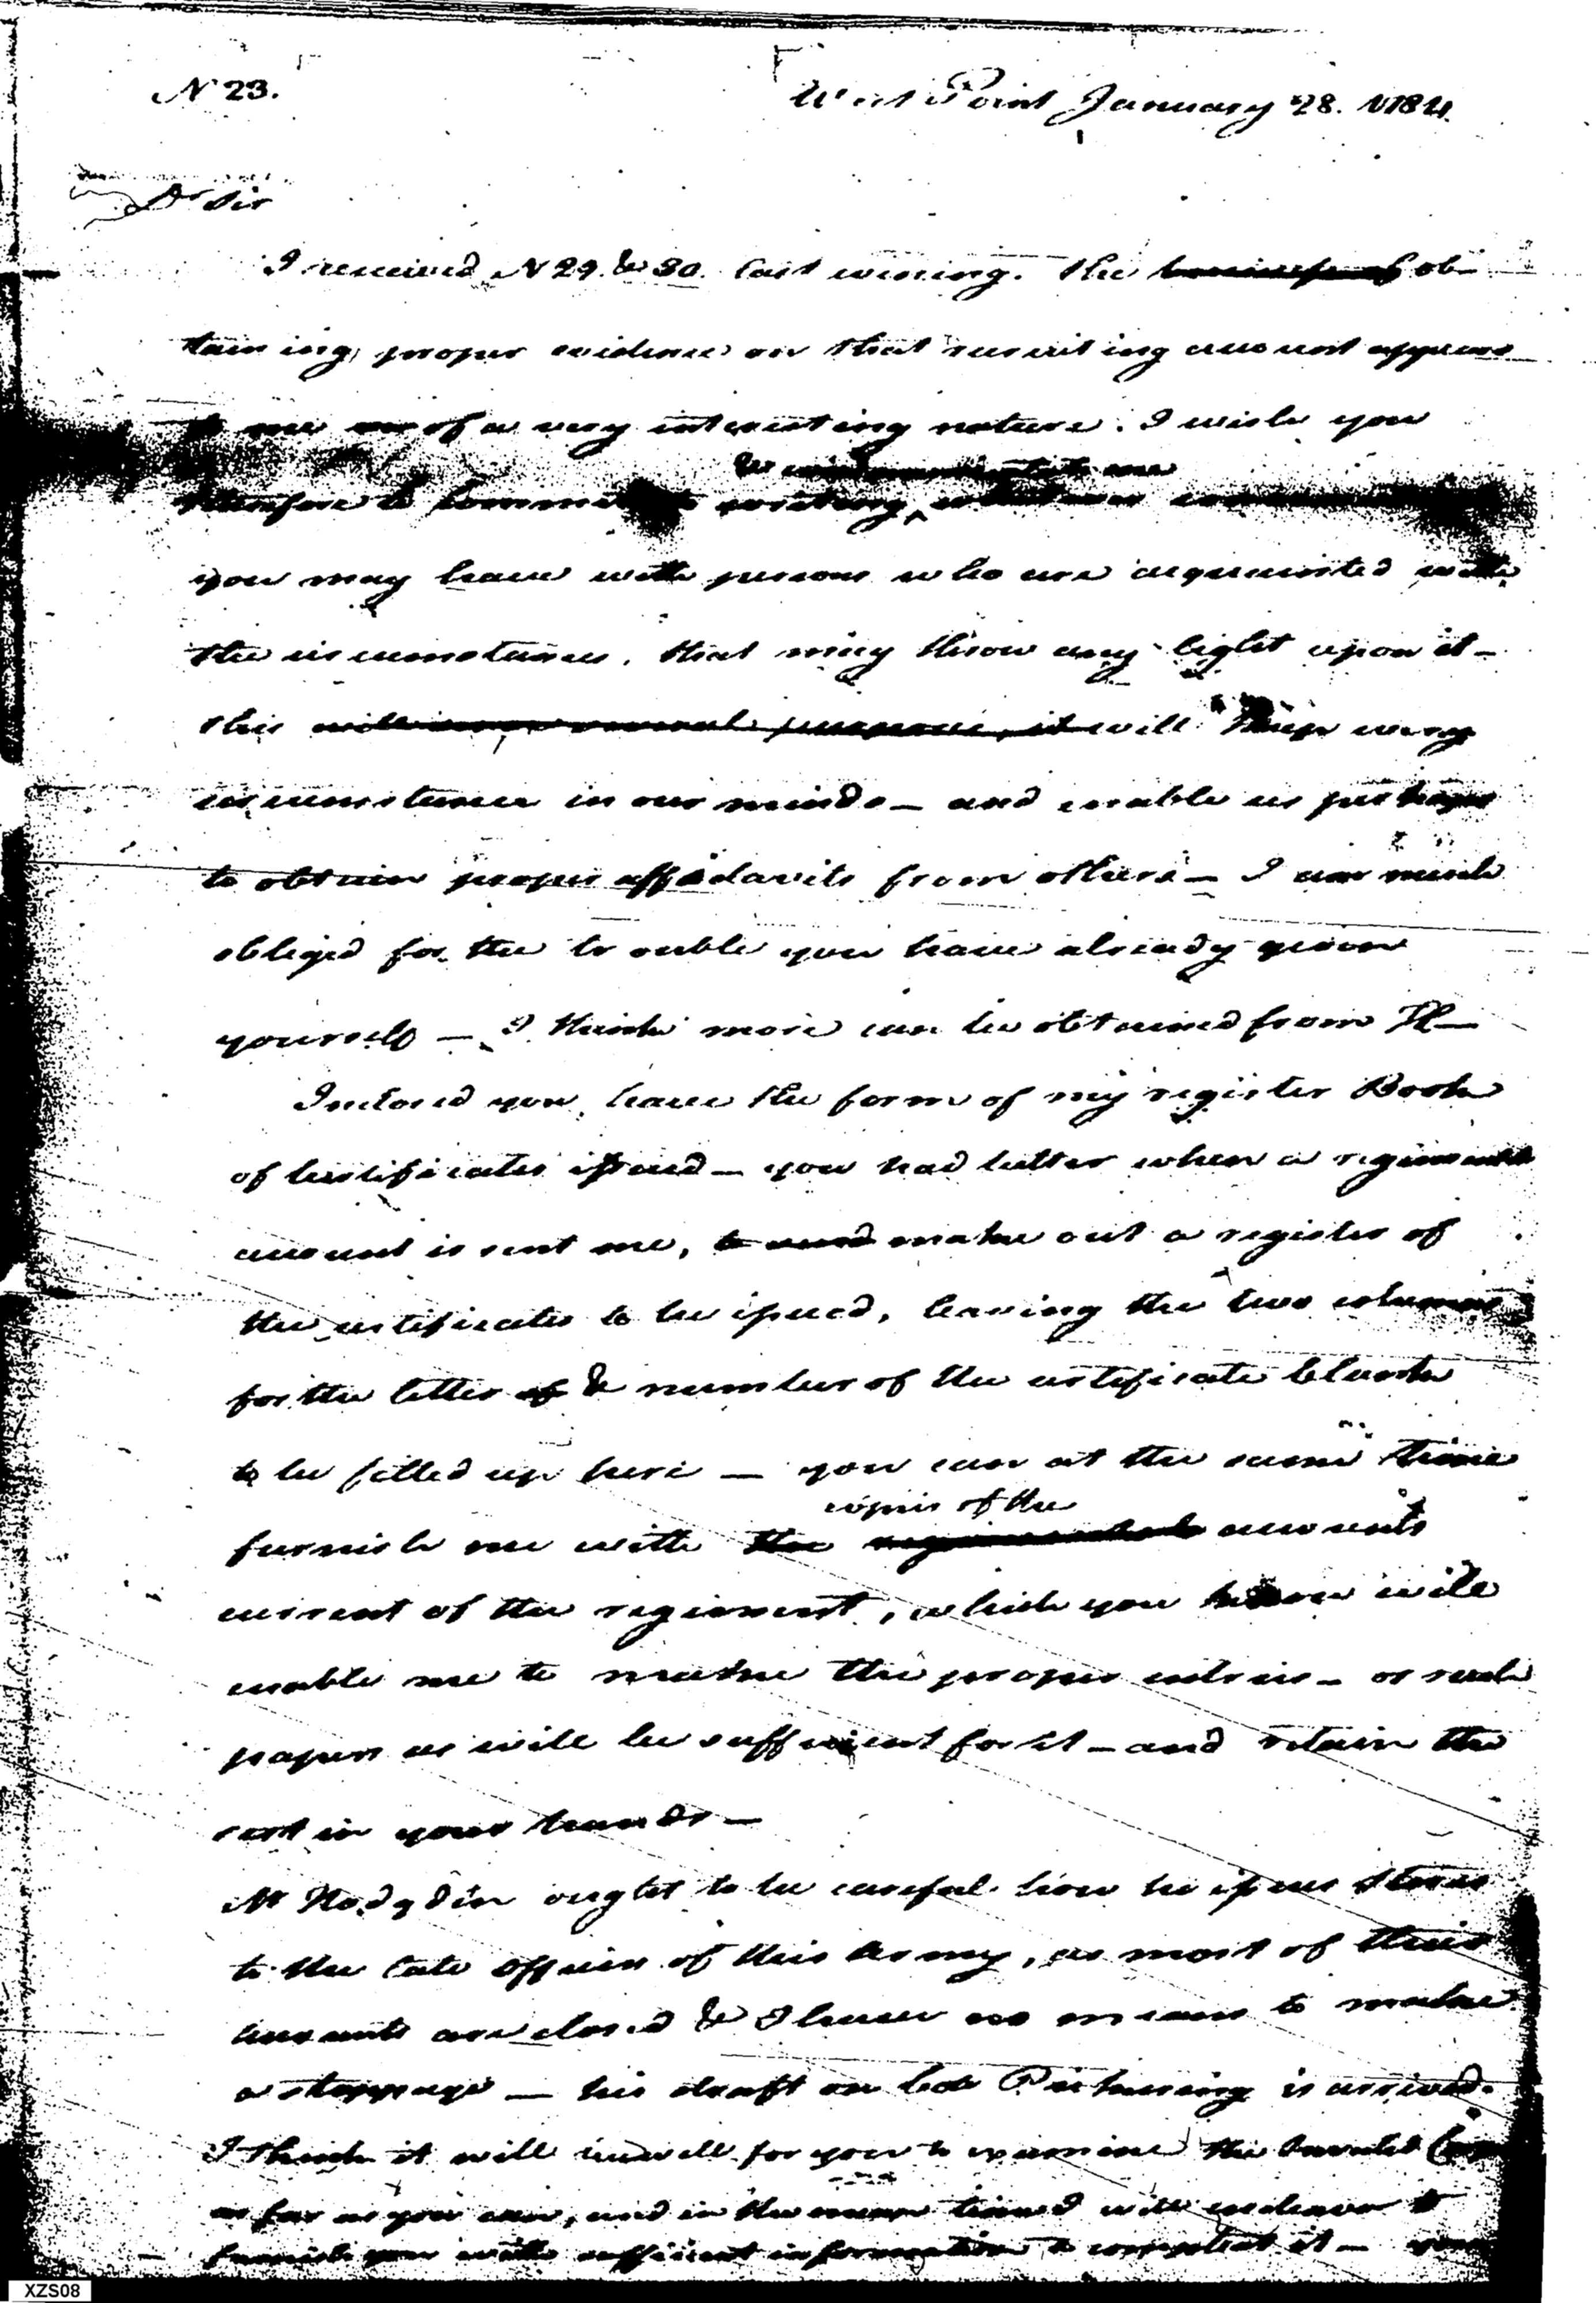 N 23.
West Point January 28. 1784.
Dr Sir
I received N 29. & 30. last evening. the ob-
taining proper evidence on that recruiting account appears
to me of a very interesting nature. I wish you
therefore to commit to writing
you may have with persons who are acquainted with
the circumstances, that may throw any light upon it—
this will keep every
circumstance in our minds— and enable us perhaps
to obtain proper affidavits from others— I am much
obliged for the trouble you have already given
yourself — I think more can be obtained from H—
Inclosed you have the form of my register Book
of Certificates issued— you had better when a regimental
account is sent me, to send make out a register of
the certificates to be issued, leaving the two columns
for the letter of & number of the certificate blank
to be filled up here — you can at the same time
copies of the
furnish me with the regimental accounts
current of the regiment, which you know will
enable me to make the proper entries— or such
papers as will be sufficient for it—and retain the
rest in your hands—
Mr Hodgdin ought to be careful how he issues stores
to the late officers of this Army, as most of their
accounts are closed & I have no means to make
a stoppage — his draft on Colo Pickering is arrived.
I think it will be well for you to examine the Invalid
as far as you can, and in the mean time I will endeavor to
furnish you with sufficient information to compleat it — your
XZS08